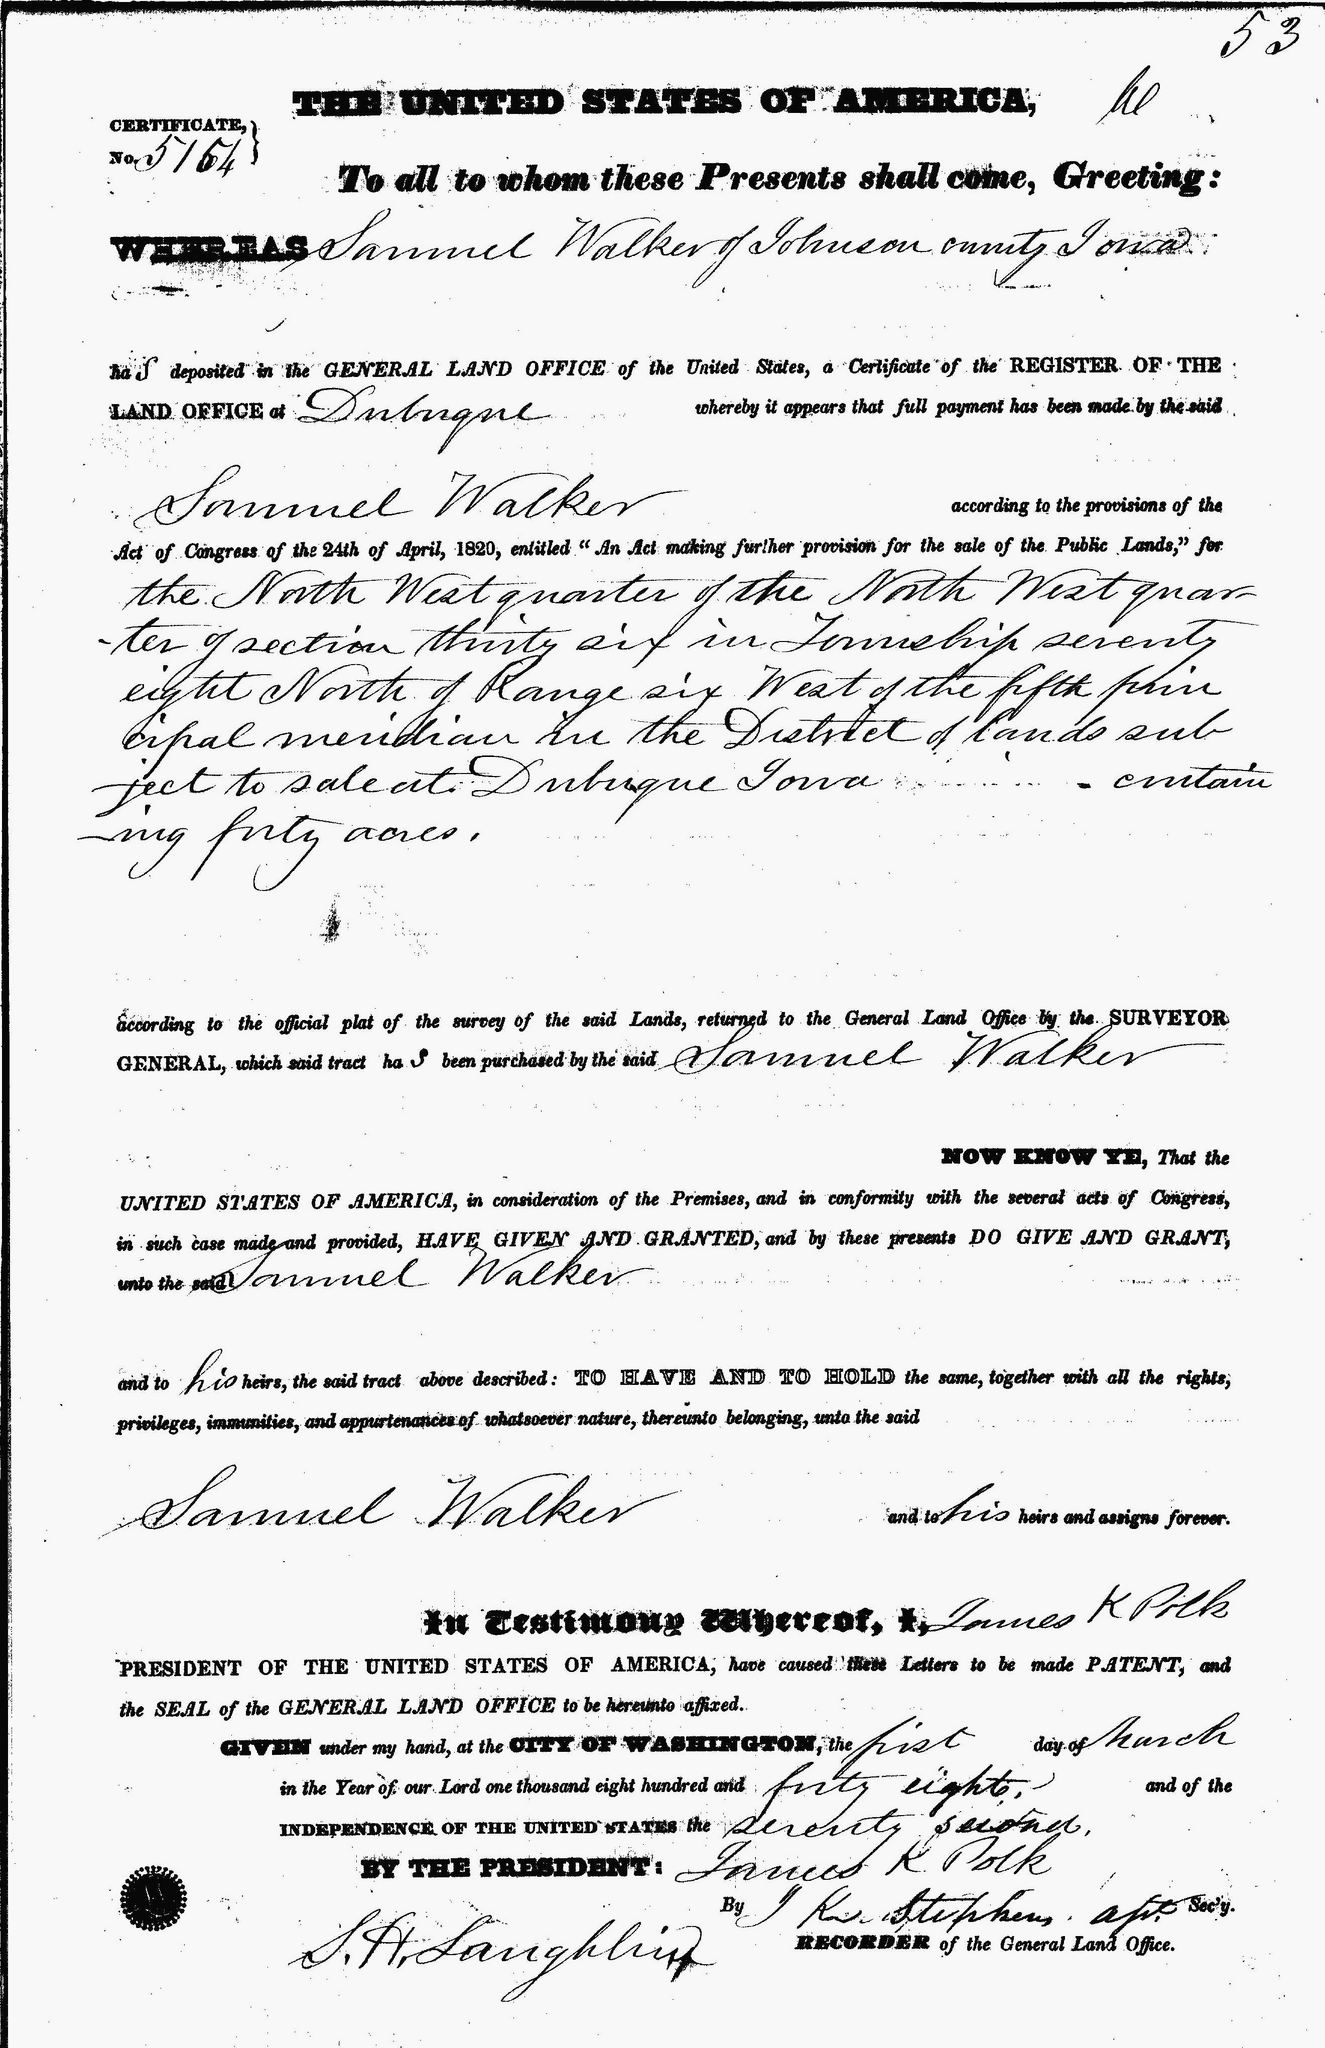 53
THE UNITED STATES OF AMERICA,
CERTIFICATE,
No. 5164
To all to whom these Presents shall come, Greeting:
WHEREAS Samuel Walker of Johnson county Iowa
has deposited in the GENERAL LAND OFFICE of the United States, a Certificate of the REGISTER OF THE
LAND OFFICE at Dubuque whereby it appears that full payment has been made by the said
Samuel Walker according to the provisions of the
Act of Congress of the 24th of April, 1820, entitled "An Act making further provision for the sale of the Public Lands," for
the North West quarter of the North West quar-
-ter of section thirty six in Township seventy
eight North of Range six West of the fifth prin
cipal meridian in the District of lands sub
-ject to sale at Dubuque Iowa - contain
-ing forty acres.
according to the official plat of the survey of the said Lands, returned to the General Land Office by the SURVEYOR
GENERAL, which said tract has been purchased by the said Samuel Walker
NOW KNOW YE, That the
UNITED STATES OF AMERICA, in consideration of the Premises, and in conformity with the several acts of Congress,
in such case made and provided, HAVE GIVEN AND GRANTED, and by these presents DO GIVE AND GRANT,
unto the said Samuel Walker
and to his heirs, the said tract above described: TO HAVE AND TO HOLD the same, together with all the rights,
privileges, immunities, and appurtenances of whatsoever nature, thereunto belonging, unto the said
Samuel Walker and to his heirs and assigns forever.
In Testimony Whereof, I, James K Polk
PRESIDENT OF THE UNITED STATES OF AMERICA, have caused these Letters to be made PATENT, and
the SEAL of the GENERAL LAND OFFICE to be hereunto affixed.
GIVEN under my hand, at the CITY OF WASHINGTON, the first day of March
in the Year of our Lord one thousand eight hundred and forty eight, and of the
INDEPENDENCE OF THE UNITED STATES the seventy second.
BY THE PRESIDENT: James K Polk
By J K Stephens Sec'y.
S. H. Laughlin RECORDER of the General Land Office.